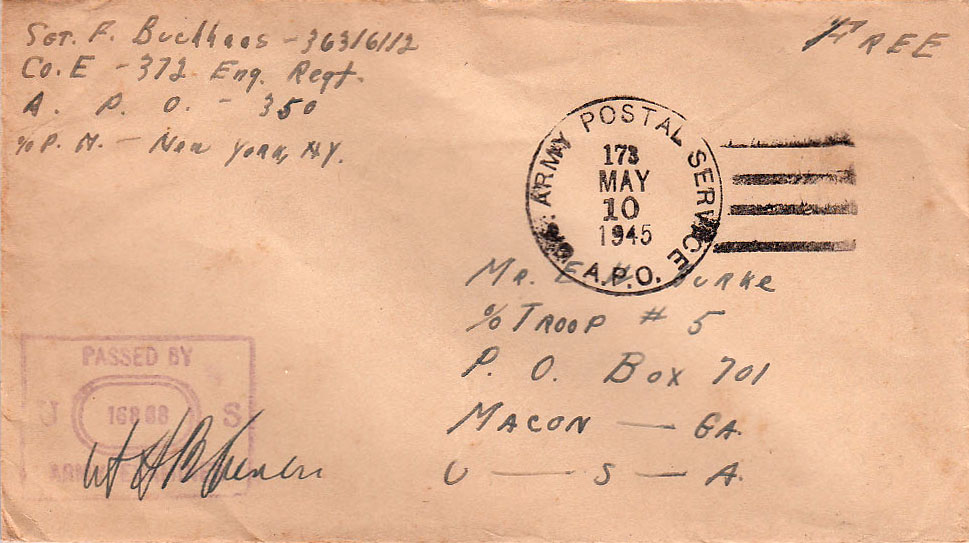 Sgt. F. Buckhaas - 36316112
Co. E - 372 Eng. Regt.
A. P. O. - 350
c/o P. M. - New York, NY.
FREE
U.S. ARMY POSTAL SERVICE
173
MAY
10
1945
A.P.O.
Mr. E Burke
c/o TROOP # 5
P. O. Box 701
MACON — GA.
U — S — A.
PASSED BY
U S
ARMY